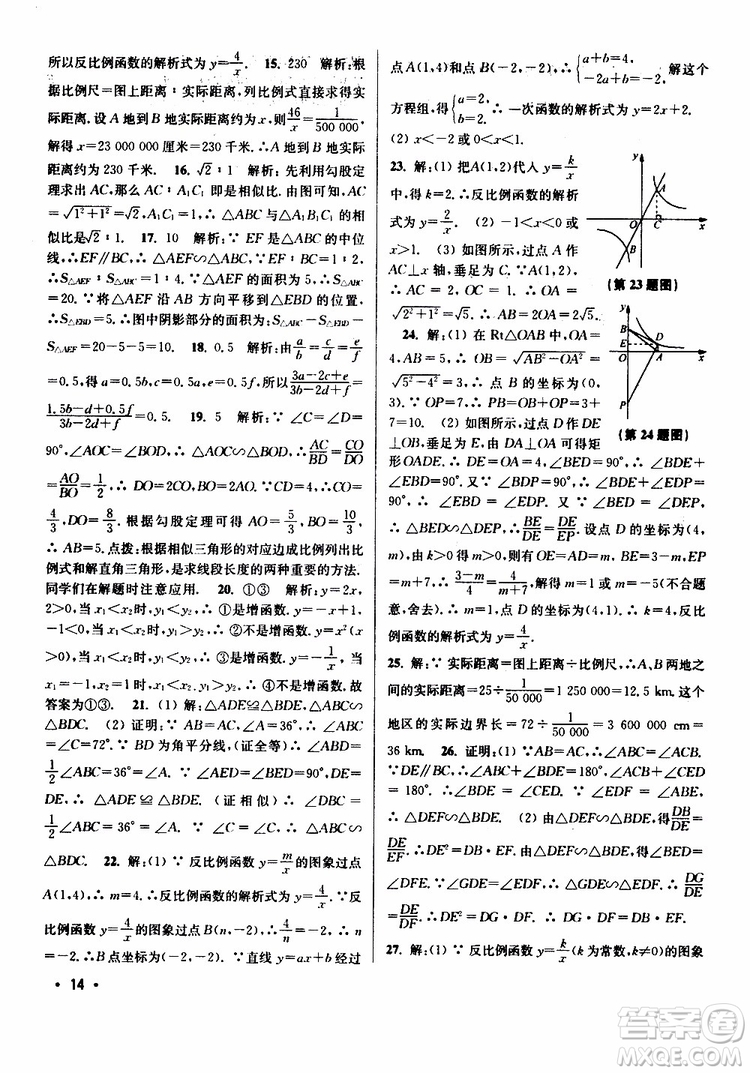 所以反比例函数的解析式为 y=4/x. 15. 230 解析:根
据比例尺=图上距离∶实际距离,列比例式直接求得实
际距离. 设 A 地到 B 地实际距离约为 x,则46/x=1/500 000,
解得 x=23 000 000 厘米=230 千米. ∴ A 地到 B 地实际
距离约为 230 千米. 16. √2∶1 解析:先利用勾股定
理求出 AC,那么 AC∶A₁C₁ 即是相似比. 由图可知,AC
=√(1²+1²)=√2,A₁C₁=1,∴ △ABC 与△A₁B₁C₁ 的相
似比是√2∶1. 17. 10 解析:∵ EF 是△ABC 的中位
线,∴EF∥BC,∴△AEF∽△ABC,∴EF∶BC=1∶2,
∴S△AEF∶S△ABC=1∶4. ∵△AEF 的面积为 5,∴S△ABC
=20. ∵将△AEF 沿 AB 方向平移到△EBD 的位置,
∴S△EBD=5,∴图中阴影部分的面积为 S△ABC-S△EBD-
S△AEF=20-5-5=10. 18. 0.5 解析:∵a/b=c/d=e/f
=0.5,得 a=0.5b,c=0.5d,e=0.5f,∴(3a-2c+e)/(3b-2d+f)=
(1.5b-d+0.5f)/(3b-2d+f)=0.5. 19. 5 解析:∵ ∠C=∠D=
90°,∠AOC=∠BOD,∴ △AOC∽△BOD,∴ AC/BD=CO/DO
=AO/BO=1/2,∴ DO=2CO,BO=2AO. ∵ BD=4,∴ OC=
4/3,∴DO=8/3. 根据勾股定理可得 AO=5/3,∴ BO=10/3.
∴ AB=5. 点拨:根据相似三角形的对应边成比例列出比
例式和解直角三角形,是求线段长度的两种重要的方法.
同学们在解题时注意应用. 20. ①③ 解析:y=2x,
2>0,当 x₁<x₂ 时,y₁<y₂,∴ ①是增函数. y=-x+1,
-1<0,当 x₁<x₂ 时,y₁>y₂,∴ ②不是增函数. y=x²(x
>0),当 x₁<x₂ 时,y₁<y₂,∴ ③是增函数. y=-1/x,当
x₁=-1<x₂=1 时,y₁>y₂,∴ ④不是增函数. 故
答案为①③. 21. (1) 解:△ADE≌△BDE,△ABC∽
△BDC. (2) 证明:∵ AB=AC,∠A=36°,∴ ∠ABC=
∠C=72°. ∵ BD 为角平分线,(证全等)∴ ∠ABD=
1/2∠ABC=36°=∠A. ∵ ∠AED=∠BED,DE=DE,
∴ △ADE≌△BDE. (证相似)∴ ∠DBC=
1/2∠ABC=36°=∠A. ∵ ∠C=∠C,∴ △ABC∽
△BDC. 22. 解:(1) ∵ 反比例函数 y=m/x的图象过点
A(1,4),∴ m=4. ∴反比例函数的解析式为 y=4/x. ∵反
比例函数 y=4/x的图象过点 B(n,-2),∴-2=4/n,∴ n
=-2. ∴B 点坐标为(-2,-2). ∵直线 y=ax+b 经过
· 14 ·
点 A(1,4)和点 B(-2,-2),∴ {a+b=4, -2a+b=-2. 解这个
方程组,得{a=2, b=2. ∴ 一次函数的解析式为 y=2x+2.
(2) x<-2 或 0<x<1.
23. 解:(1) 把A(1,2)代入 y=k/x
中,得 k=2. ∴反比例函数的解析
式为 y=2/x. (2) -1<x<0 或
x>1. (3) 如图所示,过点 A 作
AC⊥x 轴,垂足为 C. ∵A(1,2),
∴ AC=2,OC=1. ∴ OA=
√(2²+1²)=√5. ∴ AB=2OA=2√5.
(第 23 题图)
24. 解:(1) 在 Rt△OAB 中,OA=
4,AB=5,∴ OB=√(AB²-OA²)=
√(5²-4²)=3,∴ 点 B 的坐标为(0,
3). ∵ OP=7,∴ BP=OB+OP=3+
7=10. (2) 如图所示,过点 D 作 DE
⊥OB,垂足为 E,由 DA⊥OA 可得矩
(第 24 题图)
形 OADE. ∴ DE=OA=4,∴ ∠BED=90°,∴ ∠BDE+
∠EBD=90°. 又∵ ∠BDP=90°,∴ ∠BDE+∠EDP=
90°,∴ ∠EBD=∠EDP. 又∵ ∠BED=∠DEP=90°,
∴ △BED∽△DEP,∴ BE/DE=DE/EP. 设点 D 的坐标为(4,
m)(m>0),由 k>0 可得 OE=AD=m,BE=3-m,EP
=m+7,∴ (3-m)/4=4/(m+7),解得 m₁=1,m₂=-5(不合题
意,舍去). ∴ m=1,点 D 的坐标为(4,1). ∴ k=4,反比
例函数的解析式为 y=4/x.
25. 解:∵ 实际距离=图上距离÷比例尺,∴ A、B 两地之
间的实际距离=25÷1/50 000=1 250 000 cm=12.5 km,这个
地区的实际边界长=72÷1/50 000=3 600 000 cm=
36 km. 26. 证明:(1) ∵ AB=AC,∴ ∠ABC=∠ACB.
∵ DE∥BC,∴ ∠ABC+∠BDE=180°,∠ACB+∠CED=
180°. ∴ ∠BDE=∠CED. ∵ ∠EDF=∠ABE,
∴ △DEF∽△BDE. (2) 由△DEF∽△BDE,得DB/DE=
DE/EF. ∴ DE²=DB·EF. 由△DEF∽△BDE,得∠BED=
∠DFE. ∵ ∠GDE=∠EDF,∴ △GDE∽△EDF. ∴ DG/DE=
DE/DF,∴ DE²=DG·DF,∴ DG·DF=DB·EF.
27. 解:(1) ∵ 反比例函数 y=k/x(k 为常数,k≠0)的图象
答案卷
MXQE.COM